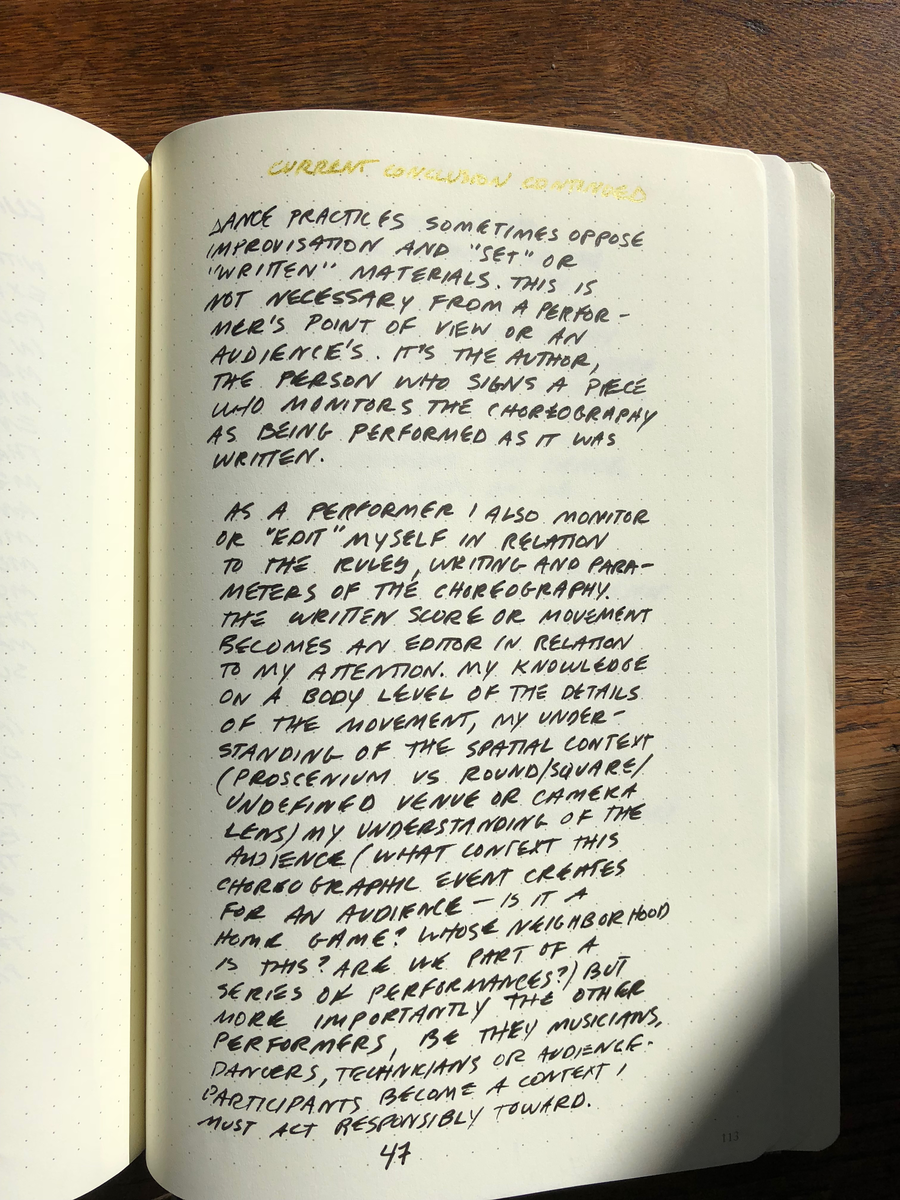 CURRENT CONCLUSION CONTINUED
DANCE PRACTICES SOMETIMES OPPOSE
IMPROVISATION AND "SET" OR
"WRITTEN" MATERIALS. THIS IS
NOT NECESSARY FROM A PERFOR-
MER'S POINT OF VIEW OR AN
AUDIENCE'S. IT'S THE AUTHOR,
THE PERSON WHO SIGNS A PIECE
WHO MONITORS THE CHOREOGRAPHY
AS BEING PERFORMED AS IT WAS
WRITTEN.
AS A PERFORMER I ALSO MONITOR
OR "EDIT" MYSELF IN RELATION
TO THE RULES, WRITING AND PARA-
METERS OF THE CHOREOGRAPHY.
THE WRITTEN SCORE OR MOVEMENT
BECOMES AN EDITOR IN RELATION
TO MY ATTENTION. MY KNOWLEDGE
ON A BODY LEVEL OF THE DETAILS
OF THE MOVEMENT, MY UNDER-
STANDING OF THE SPATIAL CONTEXT
(PROSCENIUM VS ROUND/SQUARE/
UNDEFINED VENUE OR CAMERA
LENS) MY UNDERSTANDING OF THE
AUDIENCE (WHAT CONTEXT THIS
CHOREOGRAPHIC EVENT CREATES
FOR AN AUDIENCE – IS IT A
HOME GAME? WHOSE NEIGHBORHOOD
IS THIS? ARE WE PART OF A
SERIES OF PERFORMANCES?) BUT
MORE IMPORTANTLY THE OTHER
PERFORMERS, BE THEY MUSICIANS,
DANCERS, TECHNICIANS OR AUDIENCE-
PARTICIPANTS BECOME A CONTEXT I
MUST ACT RESPONSIBLY TOWARD.
47
113